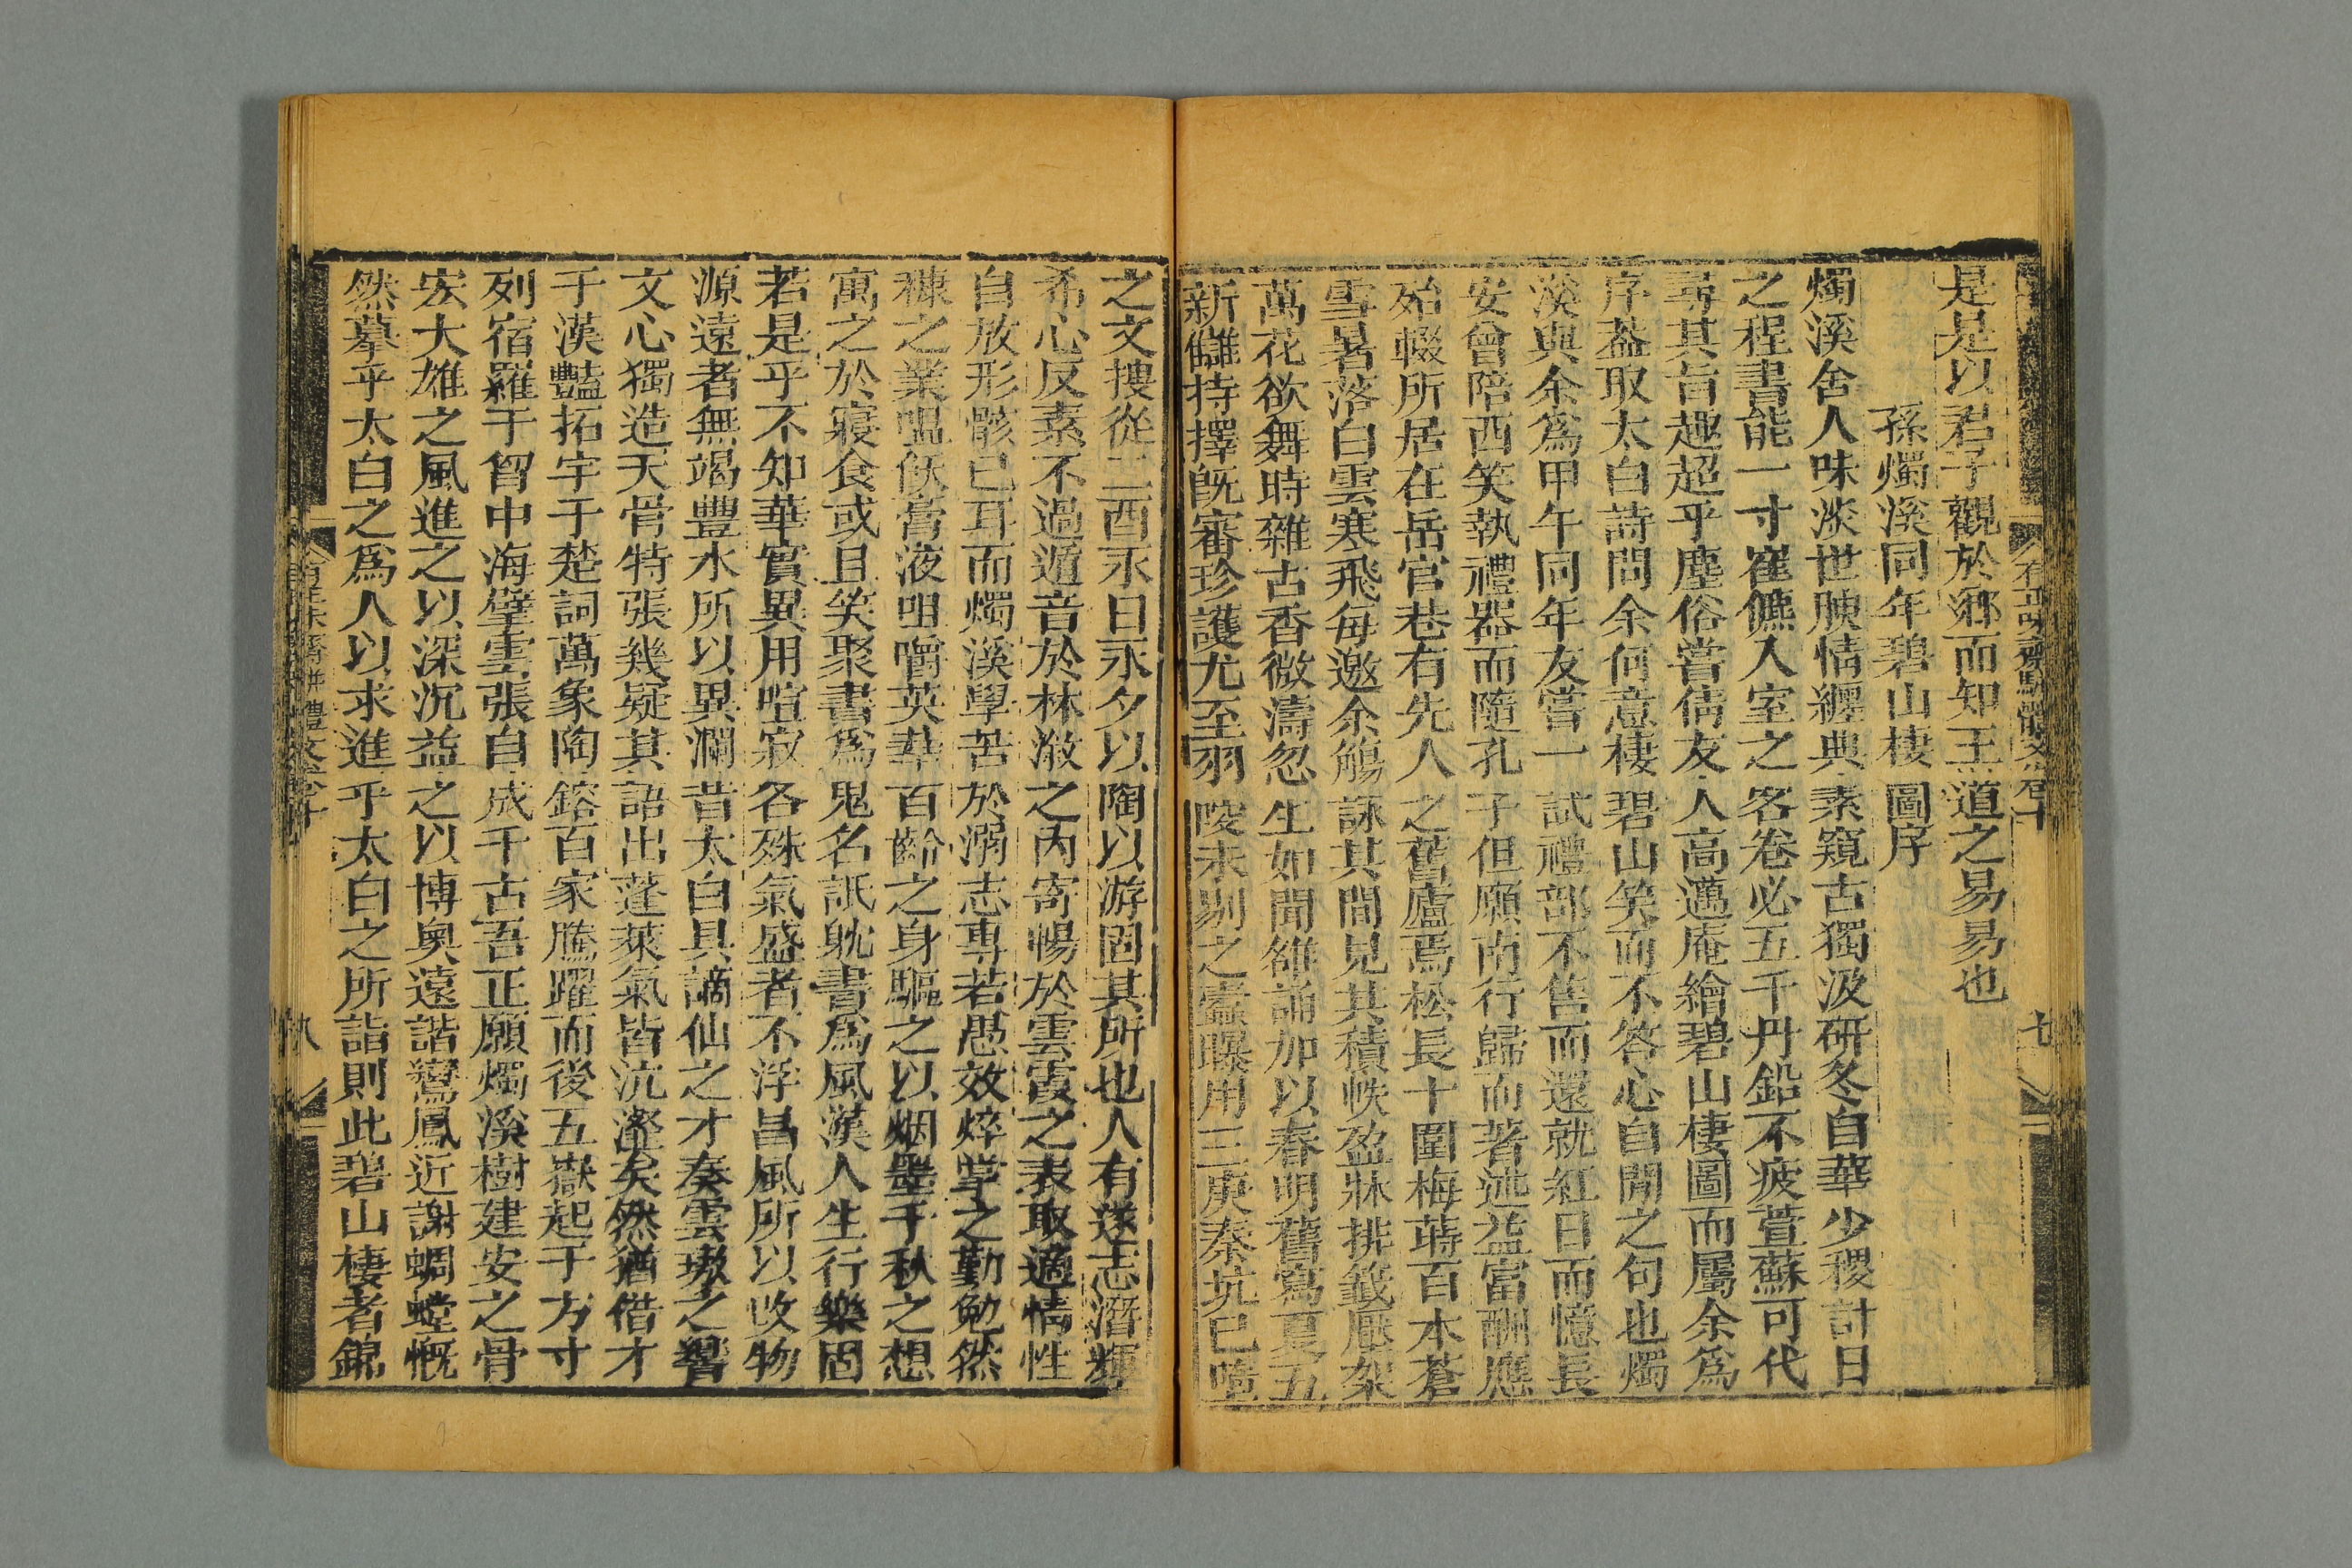 是是以君子觀於鄉而知王道之易易也
孫燭溪同年碧山棲圖序
燭溪舍人味淡世腴情纏典素窺古獨汲研冬自華少稷計日
之程書能一寸窪儺入室之客卷必五千丹鉛不疲萱蘇可代
尋其旨趣超乎塵俗嘗倩友人高邁庵繪碧山棲圖而屬余爲
序葢取太白詩問余何意棲碧山笑而不答心自閒之句也燭
溪與余爲甲午同年友嘗一試禮部不售而還就紅日而憶長
安曾陪西笑執禮器而隨孔子但願南行歸而著述益富酬應
殆輟所居在岳官巷有先人之舊廬焉松長十圍梅蒔百本蒼
雪暑落白雲寒飛每邀余觴詠其間見其積帙盈牀排籤壓架
萬花欲舞時雜古香微濤忽生如聞雒誦加以春明舊寫夏五
新讎持擇旣審珍護尤至羽陵未剔之蠹曝用三庚秦坑已噎
之文摟從二酉永日永夕以陶以游固其所也人有遂志潛輝
希心反素不過遁音於林潋之內寄暢於雲霞之表取適情性
自放形骸已耳而燭溪學苦於溺志專若愚效焠掌之勤勉然
糠之業嗢飫膏液咀嚼英華百齡之身驅之以烟墨千秋之想
寓之於寢食或且笑聚書爲鬼名詆躭書爲風漢人生行樂固
若是乎不知華實異用喧寂各殊氣盛者不浮昌風所以收物
源遠者無竭豐水所以異瀾昔太白具謫仙之才奏雲璈之響
文心獨造天骨特張幾疑其語出蓬萊氣皆沆瀣矣然猶借才
于漢豔拓宇于楚詞萬象陶鎔百家騰躍而後五嶽起于方寸
列宿羅于胷中海擘雲張自成千古吾正願燭溪樹建安之骨
宏大雄之風進之以深沉益之以博奧遠諧鸞鳳近謝蜩螗慨
然摹乎太白之爲人以求進乎太白之所詣則此碧山棲者錦